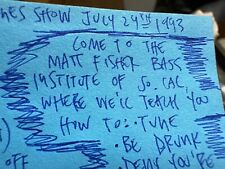 WES SHOW JULY 24TH 1993
COME TO THE
MATT FISHER BASS
INSTITUTE OF SO. CAL,
WHERE WE'LL TEACH YOU
HOW TO: • TUNE
• BE DRUNK
OFF • DENY YOU'RE